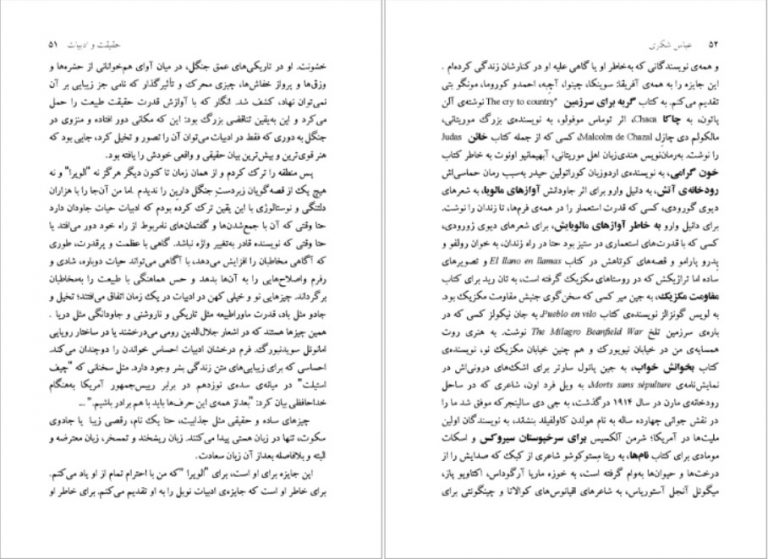 حقیقت و ادبیات ۵۱
خشونت. او در تاریکی‌های عمق جنگل، در میان آوای هم‌خوانانی از حشره‌ها و
وزق‌ها و پرواز خفاش‌ها، چیزی محرک و تأثیرگذار که نامی جز زیبایی بر آن
نمی‌توان نهاد، کشف شد. انگار که با آوازش قدرت حقیقت طبیعت را حمل
می‌کرد و این به‌یقین تناقضی بزرگ بود: این که مکانی دور افتاده و منزوی در
جنگل به دوری که فقط در ادبیات می‌توان آن را تصور و تخیل کرد، جایی بود که
هنر قوی‌ترین و بیش‌ترین بیان حقیقی و واقعی خودش را یافته بود.
پس منطقه را ترک کردم و از همان زمان تا کنون دیگر هرگز نه "الویرا" و نه
هیچ یک از قصه‌گویان زبردست جنگل دارین را ندیدم. اما من آن‌جا را با هزاران
دلتنگی و نوستالوژی با این یقین ترک کرده بودم که ادبیات حیات جاودان دارد
حتا وقتی که آن با جمع‌شدن‌ها و گفتمان‌های نامربوط از راه خود دور می‌افتد یا
حتا وقتی که نویسنده قادر به‌تغییر واژه نباشد. گاهی با عظمت و پرقدرت، طوری
که گاهی مخاطبان را افزایش می‌دهد، با آگاهی می‌تواند حیات دوباره، شادی و
رفرم واصلاح‌هایی را به آن‌ها بدهد و حس هماهنگی با طبیعت را به‌مخاطبان
برگرداند. چیزهایی نو و خیلی کهن در ادبیات در یک زمان اتفاق می‌افتند؛ تخیل و
جادو مثل باد، قدرت ماوراطبیعه مثل تاریکی و ناروشنی و جاودانگی مثل دریا .
همین چیزها هستند که در اشعار جلال‌الدین رومی می‌درخشند یا در ساختار رویایی
امانوئل سویدنبورگ. فرم درخشان ادبیات احساس خواندن را دوچندان می‌کند.
احساسی که برای زیبایی‌های متن زندگی بشر وجود دارد. مثل سخنانی که "چیف
استیلت" در میانه‌ی سده‌ی نوزدهم در برابر رییس‌جمهور آمریکا به‌هنگام
خداحافظی بیان کرد: "بعداز همه‌ی این حرف‌ها باید با هم برادر باشیم." ...
چیزهای ساده و حقیقی مثل جذابیت، حتا یک نام، رقصی زیبا یا جادوی
سکوت، تنها در زبان هستی پیدا می‌کنند. زبان ریشخند و تمسخر، زبان معترضه و
البته و بلافاصله بعداز آن زبان سعادت.
این جایزه برای او است، برای "الویرا "که من با احترام تمام از او یاد می‌کنم.
برای خاطر او است که جایزه‌ی ادبیات نوبل را به او تقدیم می‌کنم، برای خاطر او
۵۲ عباس شکری
و همه‌ی نویسندگانی که به‌خاطر او یا گاهی علیه او در کنارشان زندگی کرده‌ام .
این جایزه را به همه‌ی آفریقا: سوینکا، چینوا، آچبه، احمدو کوروما، مونگو بتی
تقدیم می‌کنم. به کتاب گریه برای سرزمین "The cry to country نوشته‌ی آلن
پاتون، به چاکا Chaca، اثر توماس موفولو، به نویسنده‌ی بزرگ موریتانی،
مالکولم دی چازل Malcolm de Chazal، کسی که از جمله کتاب خائن Judas
را نوشت. به‌رمان‌نویس هندی‌زبان اهل موریتانی، آبهیمانیو اونوت به خاطر کتاب
خون گرامی، به نویسنده‌ی اردوزبان کوراتولین حیدر به‌سبب رمان حماسی‌اش
رودخانه‌ی آتش، به دانیل وارو برای اثر جاودانش آوازهای مالویا، به شعرهای
دیوی گورودی، کسی که قدرت استعمار را در همه‌ی فرم‌ها، تا زندان را نوشت.
برای دانیل وارو به خاطر آوازهای مالویایش، برای شعرهای دیوی ژورودی،
کسی که با قدرت‌های استعماری در ستیز بود حتی در راه زندان، به خوان رولفو و
پدرو پارامو و قصه‌های کوتاهش در کتاب El llano en llamas و تصویرهای
ساده اما تراژیکش که در روستاهای مکزیک گرفته است، به تان رید برای کتاب
مقاومت مکزیک، به جین میر کسی که سخن‌گوی جنبش مقاومت مکزیک بود.
به لویس گونزالز نویسنده‌ی کتاب Pueblo en vilo، به جان نیکولز کسی که در
باره‌ی سرزمین تلخ The Milagro Beanfield War نوشت. به هنری روت
همسایه‌ی من در خیابان نیویورک و هم چنین خیابان مکزیک نو، نویسنده‌ی
کتاب بخوانش خواب، به جین پائول سارتر برای اشک‌های درونی‌اش در
نمایش‌نامه‌ی Morts sans sépulture، به ویل فرد اون، شاعری که در ساحل
رودخانه‌ی مارن در سال ۱۹۱۴ درگذشت، به جی دی سالینجرکه موفق شد ما را
در نقش جوانی چهارده ساله به نام هولدن کاولفیلد بنشاند، به نویسندگان اولین
ملیت‌ها در آمریکا؛ شرمن آلکسیس برای سرخپوستان سیروکس و اسکات
مومادی برای کتاب نام‌ها، به ریتا مستوکوشو شاعری از کبک که صدایش را از
درخت‌ها و حیوان‌ها به‌وام گرفته است، به خوزه ماریا آرگوداس، اکتاویو پاز،
میگوئل آنجل آستوریاس، به شاعرهای اقیانوس‌های کوالاتا و چینگوئتی برای